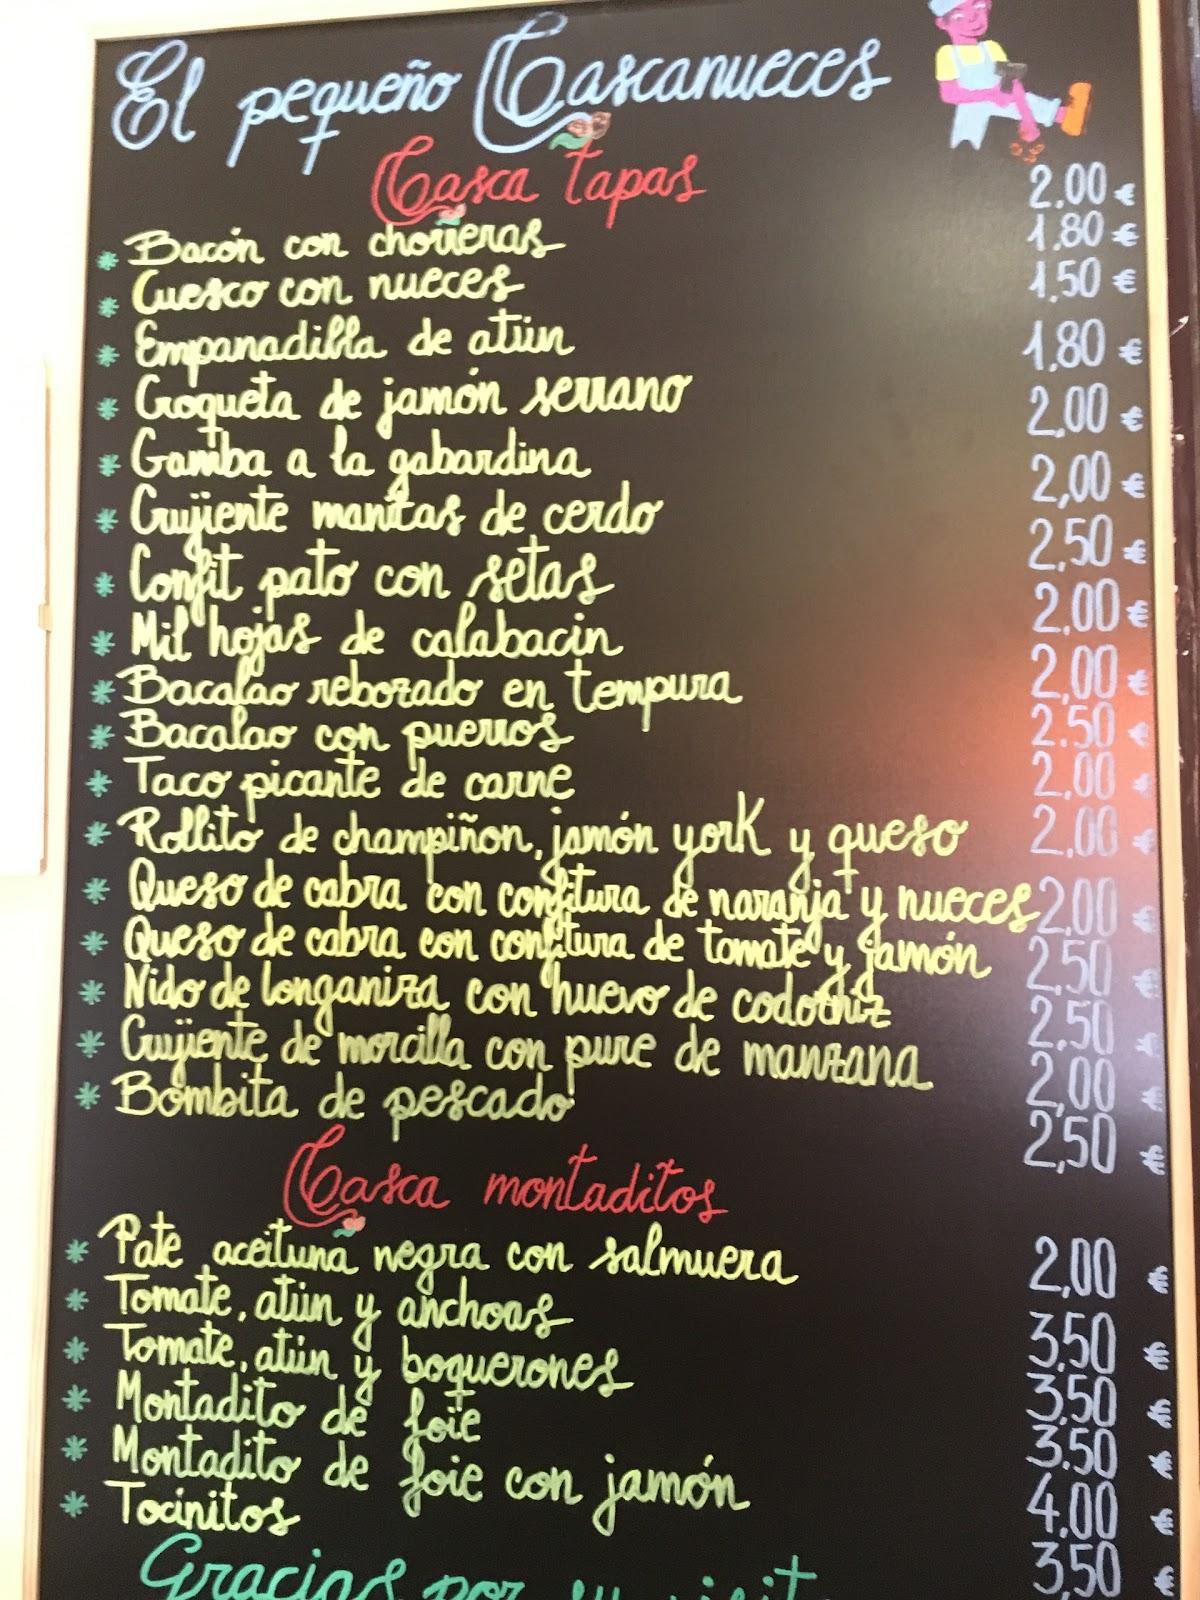 El pequeño Cascanueces
Casca tapas
* Bacón con chorreras 2.00 €
* Cuesco con nueces 1.80 €
* Empanadilla de atún 1.50 €
* Croqueta de jamón serrano 1.80 €
* Gamba a la gabardina 2.00 €
* Crujiente manitas de cerdo 2,00 €
* Confit pato con setas 2.50 €
* Mil hojas de calabacin 2.00 €
* Bacalao rebozado en tempura 2.00 €
* Bacalao con puerros 2.50 €
* Taco picante de carne 2.00 €
* Rollito de champiñon, jamón york y queso 2.00 €
* Queso de cabra con confitura de naranja y nueces 2.00 €
* Queso de cabra con confitura de tomate y jamón 2.50 €
* Nido de longaniza con huevo de codorniz 2.50 €
* Crujiente de morcilla con pure de manzana 2,00 €
* Bombita de pescado 2,50 €
Casca montaditos
* Pate aceituna negra con salmuera 2,00 €
* Tomate, atún y anchoas 3.50 €
* Tomate, atún y boquerones 3.50 €
* Montadito de foie 3.50 €
* Montadito de foie con jamón 4.00 €
* Tocinitos 3,50 €
Gracias por su visita